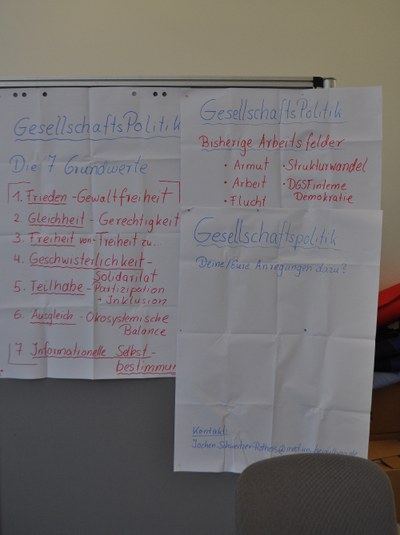 GesellschaftsPolitik
Die 7 Grundwerte
1. Frieden - Gewaltfreiheit
2. Gleichheit - Gerechtigkeit
3. Freiheit von - Freiheit zu...
4. Geschwisterlichkeit -
Solidarität
5. Teilhabe - Partizipation
• Inklusion
6. Ausgleich - Ökosystemische
Balance
7 Informationelle Selbst-
bestimmun
GesellschaftsPolitik
Bisherige Arbeitsfelder
• Armut
• Arbeit
• Flucht
• Strukturwandel
• DGSF interne
Demokratie
Gesellschaftspolitik
Deine/Eure Anregungen dazu?
Kontakt:
Jochen